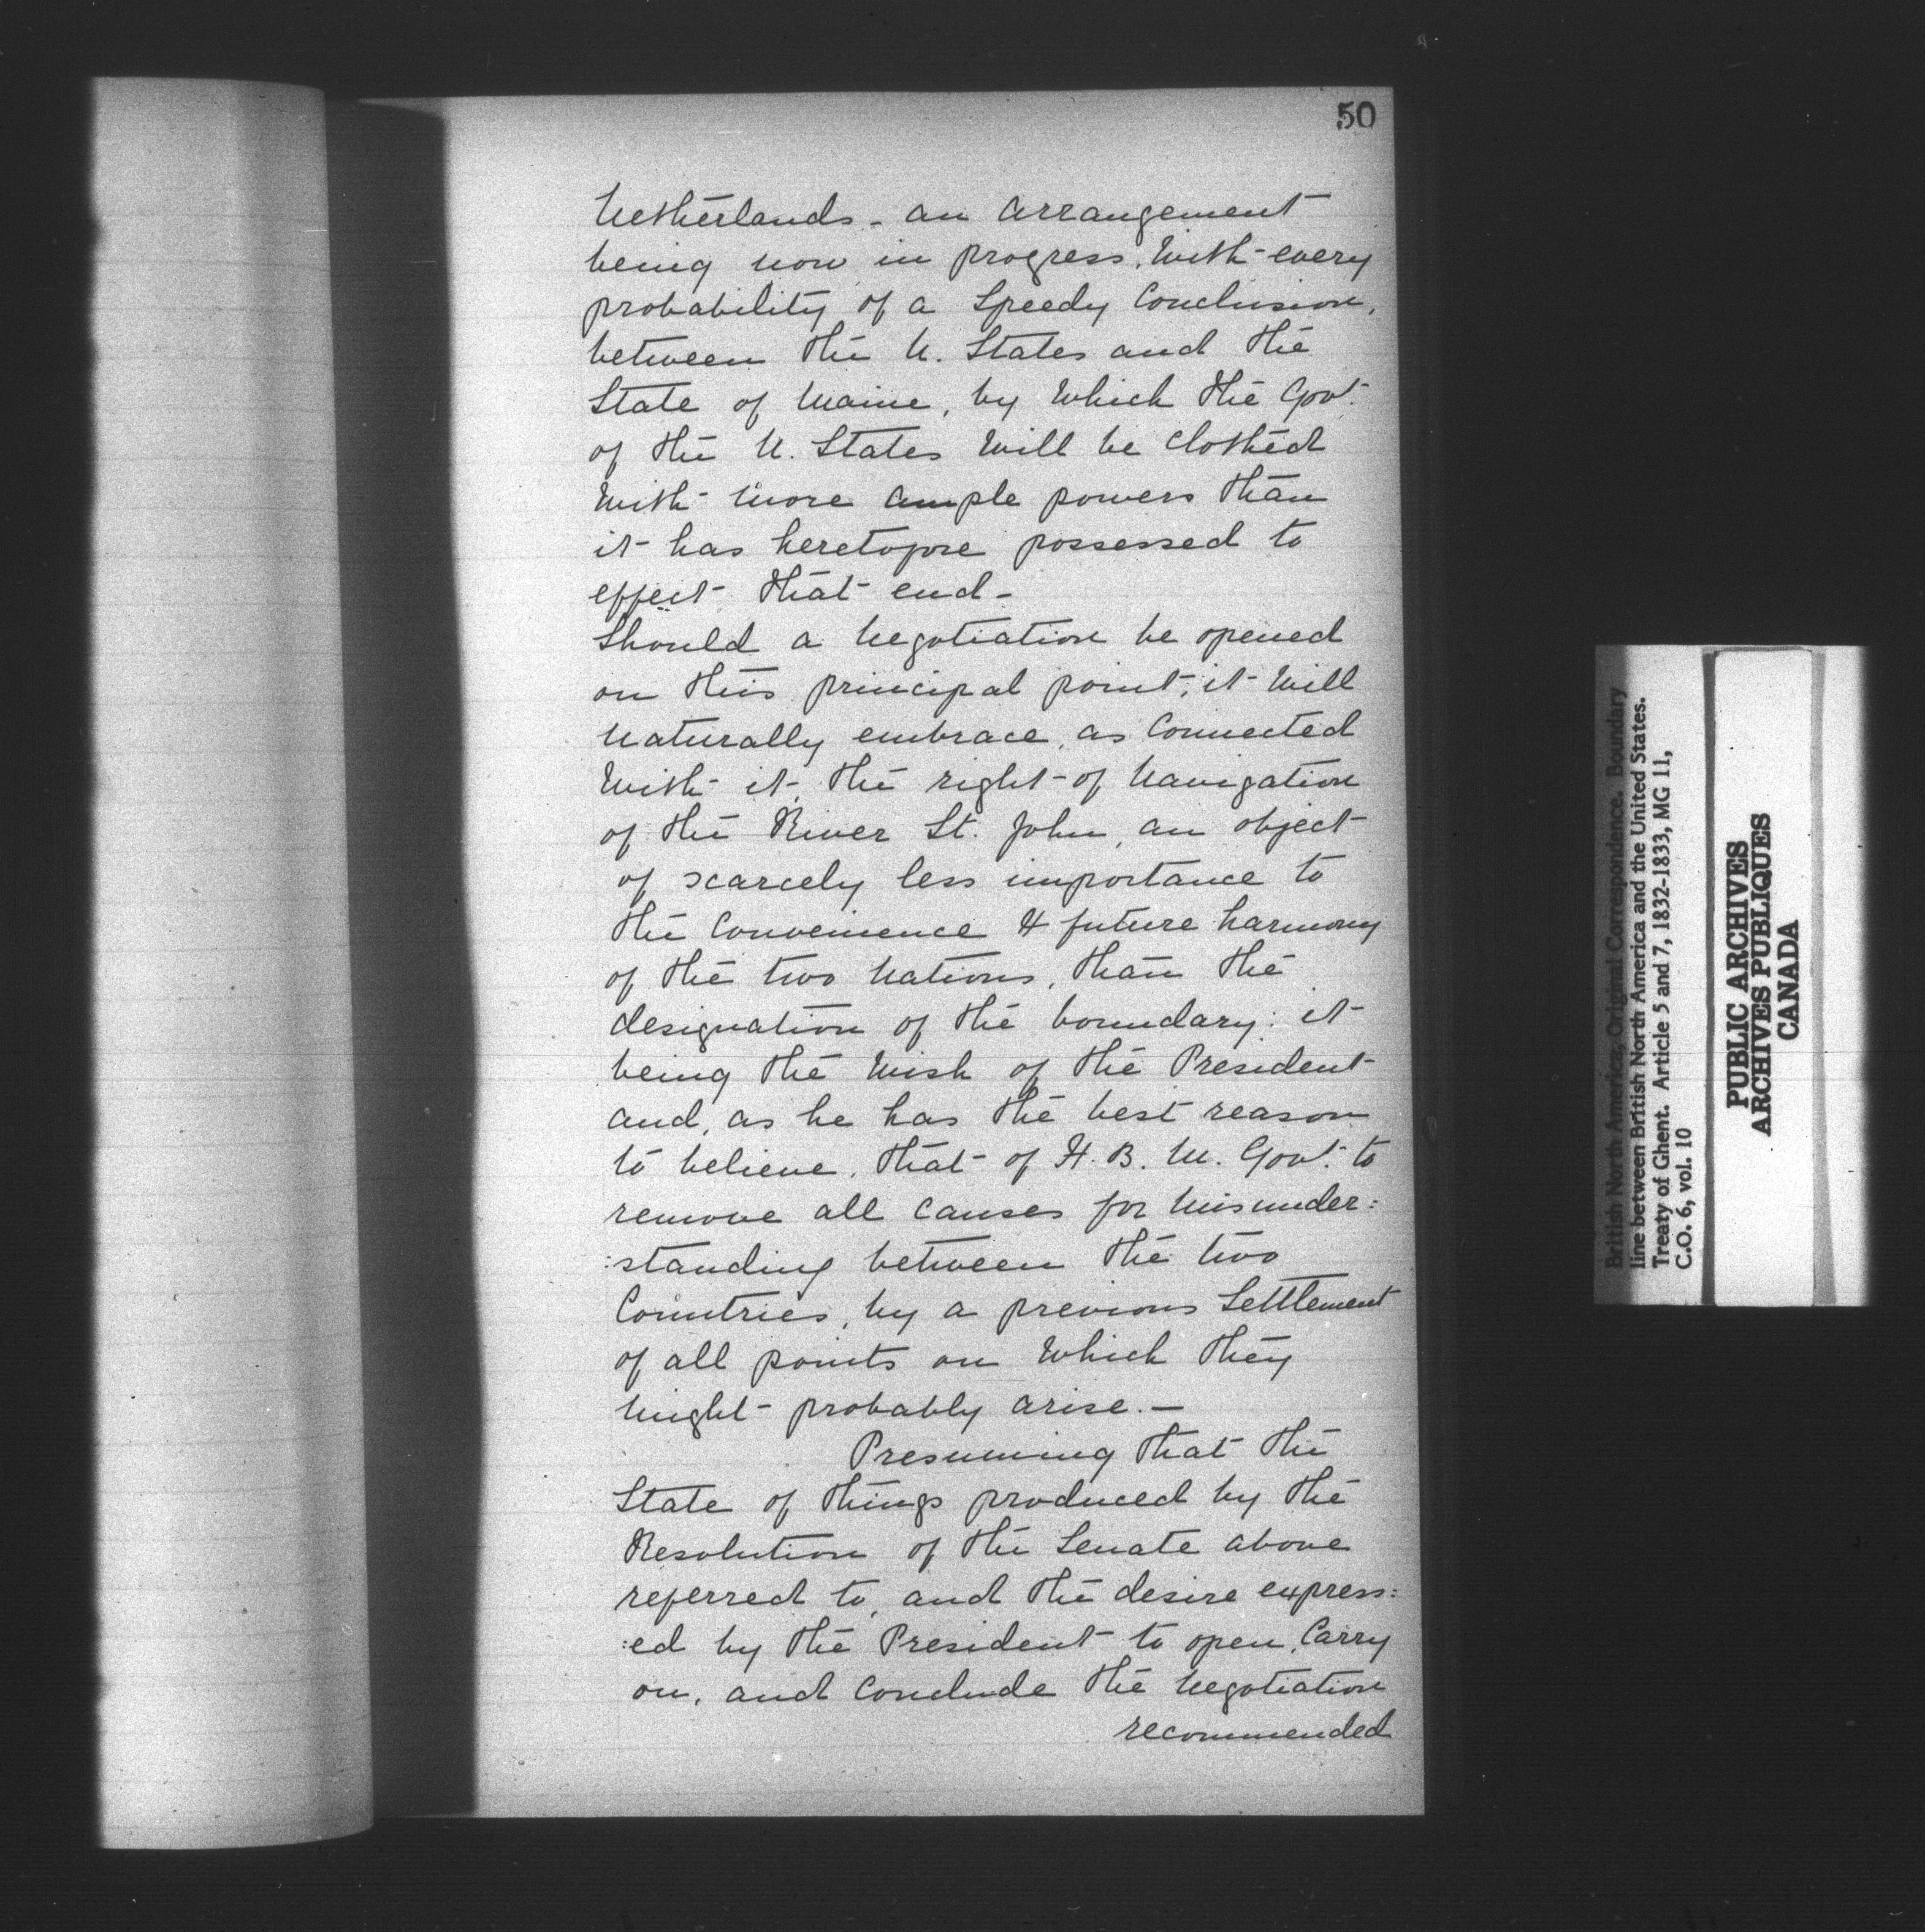 50
Netherlands - an arrangement
being now in progress, with every
probability of a Speedy Conclusion,
between the U. States and the
State of Maine, by Which the Govt.
of the U. States Will be clothed
With more ample powers than
it has heretofore possessed to
effect that end -
Should a Negotiation be opened
on this principal point, it Will
Naturally embrace, as Connected
With it, the right of Navigation
of the River St. John, an object
of scarcely less importance to
the Convenience & future harmony
of the two Nations, than the
designation of the boundary: it
being the Wish of the President
and, as he has the best reason
to believe, that of H. B. M. Govt. to
remove all Causes for Misunder:
:standing between the two
Countries, by a previous Settlement
of all points on Which they
Might probably arise. -
Presuming that the
State of things produced by the
Resolution of the Senate above
referred to, and the desire express:
:ed by the President to open, Carry
on, and Conclude the Negotiation
recommended
British North America, Original Correspondence. Boundary
line between British North America and the United States.
Treaty of Ghent. Article 5 and 7, 1832-1833, MG 11,
C.O. 6, vol. 10
PUBLIC ARCHIVES
ARCHIVES PUBLIQUES
CANADA